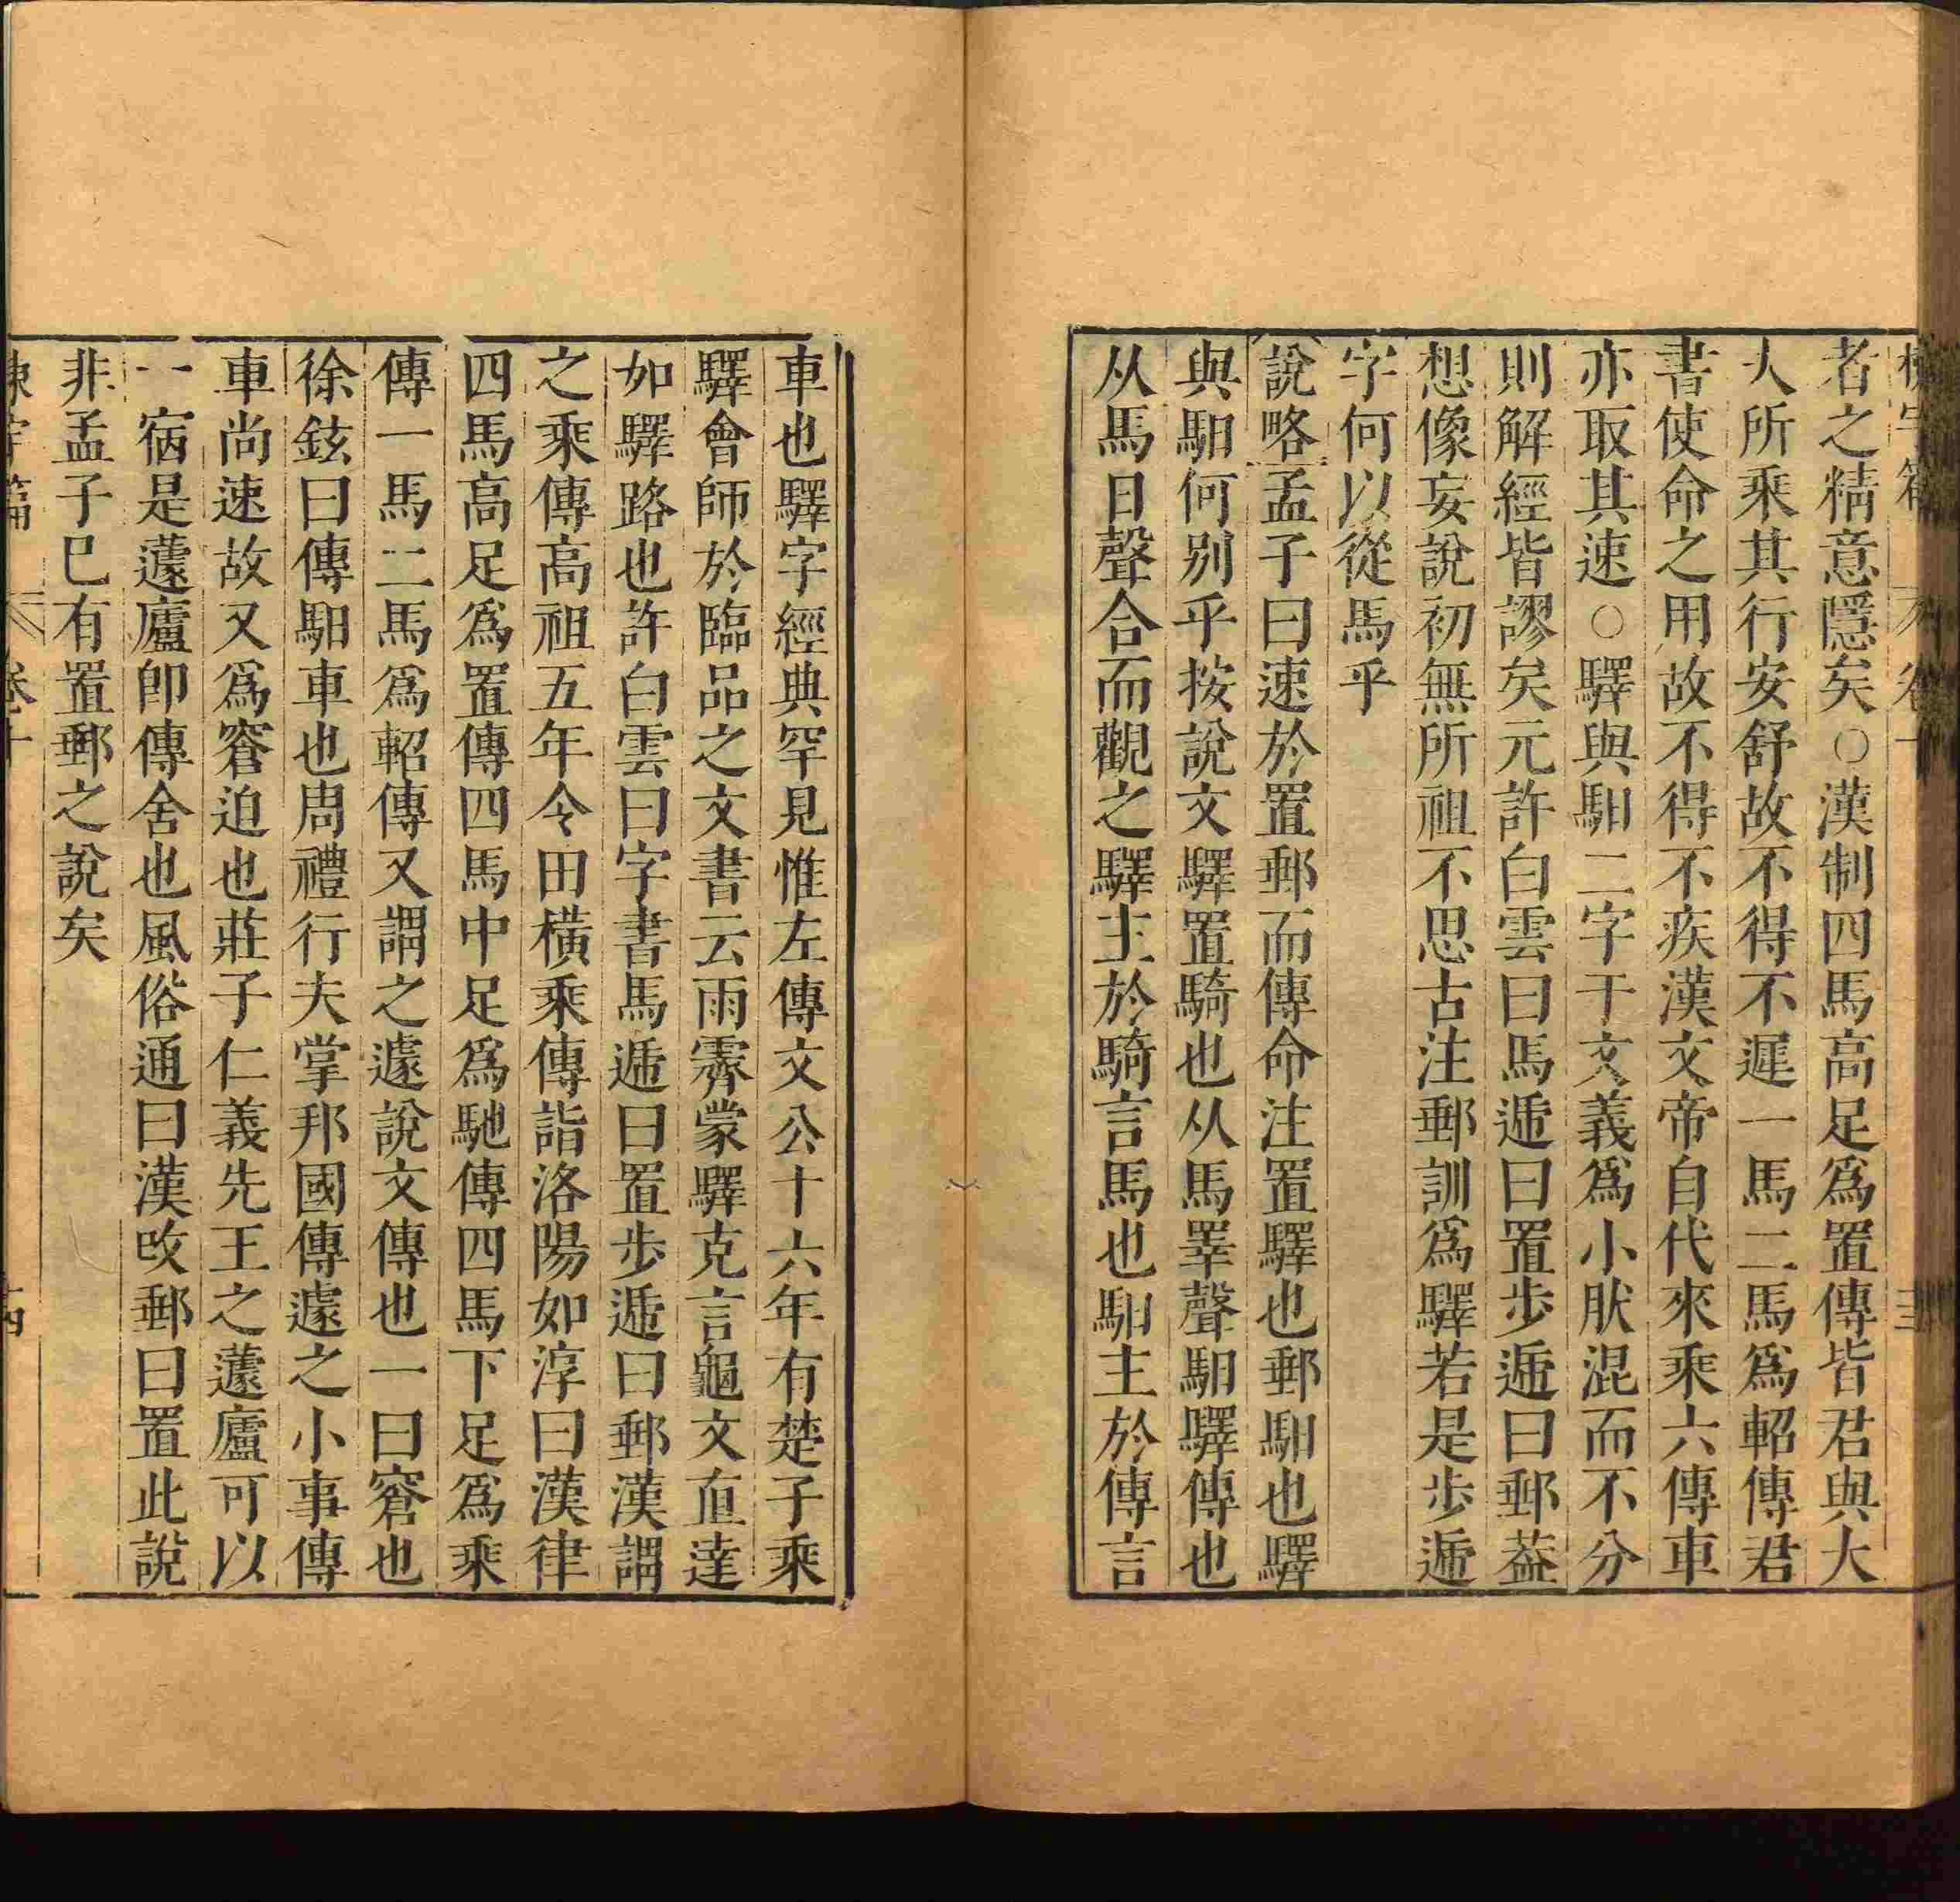 者之精意隱矣○漢制四馬高足爲置傳皆君與大
人所乘其行安舒故不得不遲一馬二馬爲軺傳君
書使命之用故不得不疾漢文帝自代來乘六傳車
亦取其速○驛與馹二字于文義爲小肰混而不分
則解經皆謬矣元許白雲曰馬遞曰置步遞曰郵葢
想像妄說初無所祖不思古注郵訓爲驛若是步遞
字何以從馬乎
說略孟子曰速於置郵而傳命注置驛也郵馹也驛
與馹何别乎按說文驛置騎也从馬睪聲馹驛傳也
从馬日聲合而觀之驛主於騎言馬也馹主於傳言
車也驛字經典罕見惟左傳文公十六年有楚子乘
驛會師於臨品之文書云雨霽蒙驛克言龜文直達
如驛路也許白雲曰字書馬遞曰置步遞曰郵漢謂
之乘傳高祖五年令田橫乘傳詣洛陽如淳曰漢律
四馬高足爲置傳四馬中足爲馳傳四馬下足爲乘
傳一馬二馬爲軺傳又謂之遽說文傳也一曰窘也
徐鉉曰傳馹車也周禮行夫掌邦國傳遽之小事傳
車尚速故又爲窘迫也莊子仁義先王之蘧廬可以
一宿是蘧廬卽傳舍也風俗通曰漢攺郵曰置此說
非孟子巳有置郵之說矣
卷十